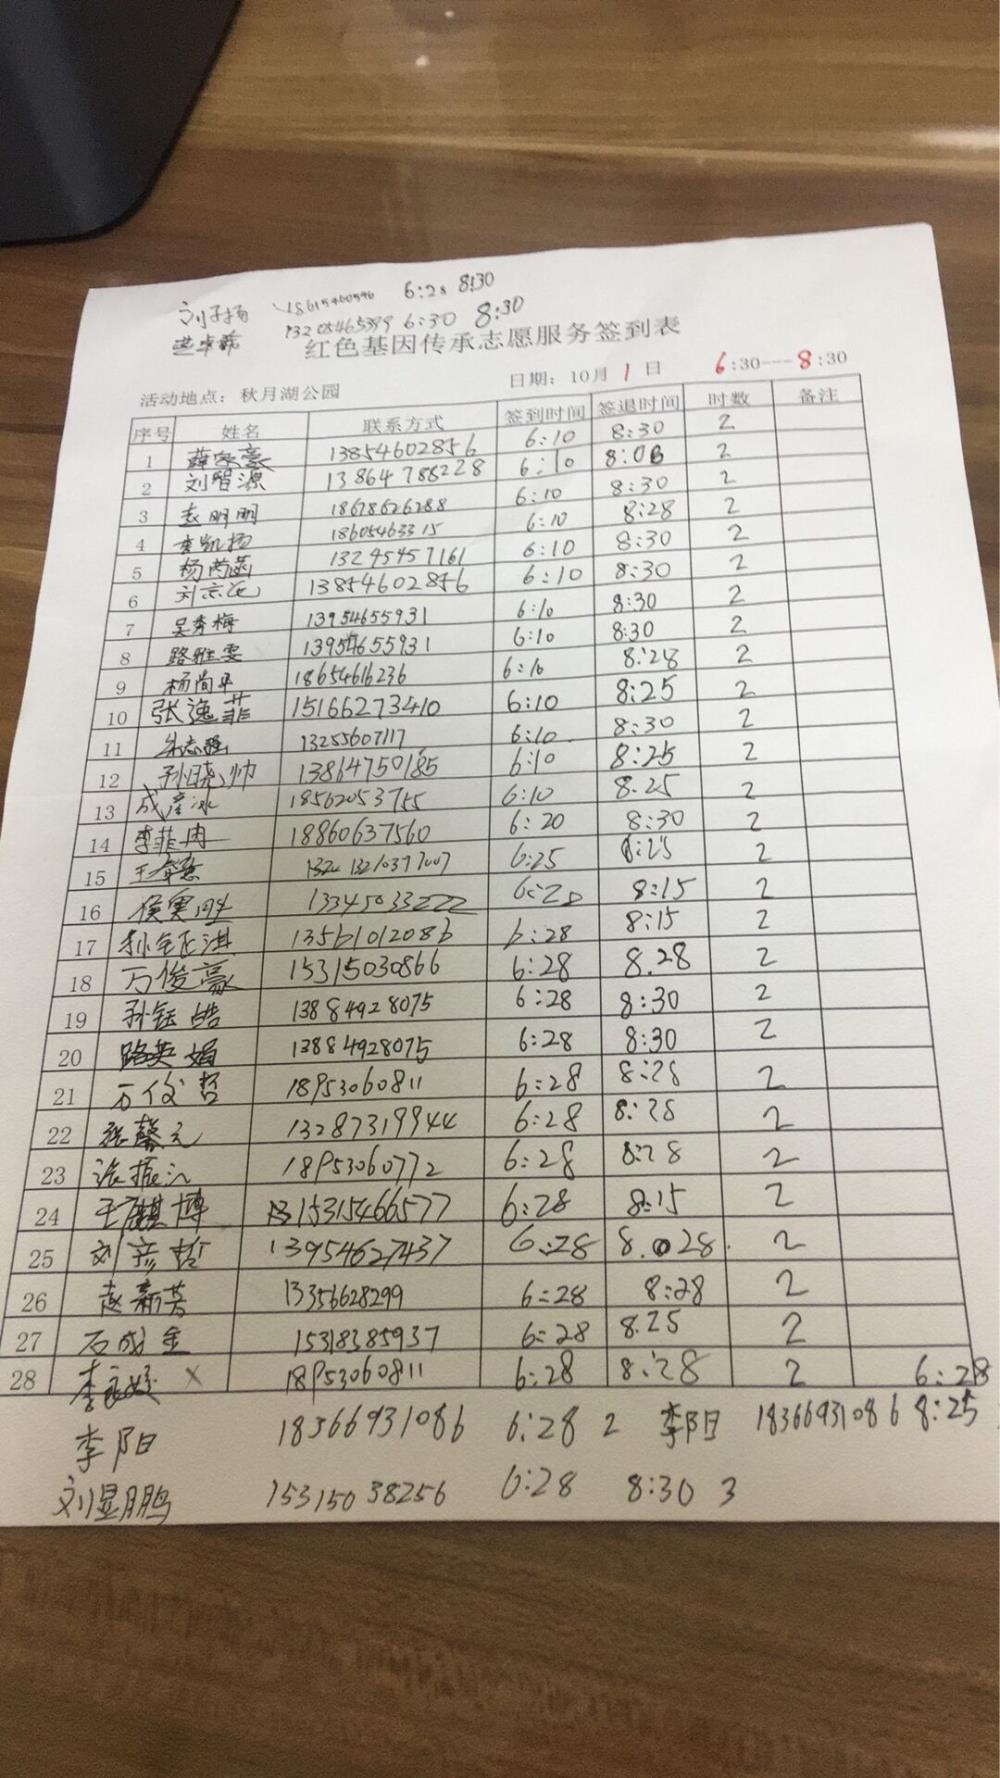 刘子扬 18615460596 6:28 8:30
13205465399 6:30 8:30
红色基因传承志愿服务签到表
活动地点：秋月湖公园 日期：10月1日 6:30---8:30
序号 姓名 联系方式 签到时间 签退时间 时数 备注
1 薛家豪 13854602856 6:10 8:30 2
2 刘智源 13864788228 6:10 8:06 2
3 赵明明 18678626288 6:10 8:30 2
4 李凯扬 18605463315 6:10 8:28 2
5 杨芮菡 13295457161 6:10 8:30 2
6 13854602856 6:10 8:30 2
7 吴秀梅 13954655931 6:10 8:30 2
8 路雅雯 13954655931 6:10 8:30 2
9 杨尚平 18654616236 6:10 8:28 2
10 张逸菲 15166273410 6:10 8:25 2
11 朱志强 13255607117 6:10 8:30 2
12 孙晓帅 13864750185 6:10 8:25 2
13 成彦冰 18562053755 6:10 8.25 2
14 李菲冉 18860637560 6:20 8:30 2
15 6:25 8:25 2
16 侯 13345033222 6:20 8:15 2
17 孙钰淇 13561012086 6:28 8:15 2
18 万俊豪 15315030866 6:28 8.28 2
19 孙钰皓 13884928075 6:28 8:30 2
20 路英娟 13884928075 6:28 8:30 2
21 万俊哲 18953060811 6:28 8:28 2
22 张馨元 13287319944 6:28 8:28 2
23 张振江 18953060772 6:28 8:28 2
24 王麒博 15315466577 6:28 8:15 2
25 刘彦哲 13954627437 6:28 8.028. 2
26 赵新芳 13356628299 6:28 8:28 2
27 石成金 15318385937 6:28 8.25 2
28 X 18953060811 6:28 8:28 2 6:28
李阳 18366931086 6:28 2 李阳 18366931086 8:25
刘显鹏 15315038256 6:28 8:30 3